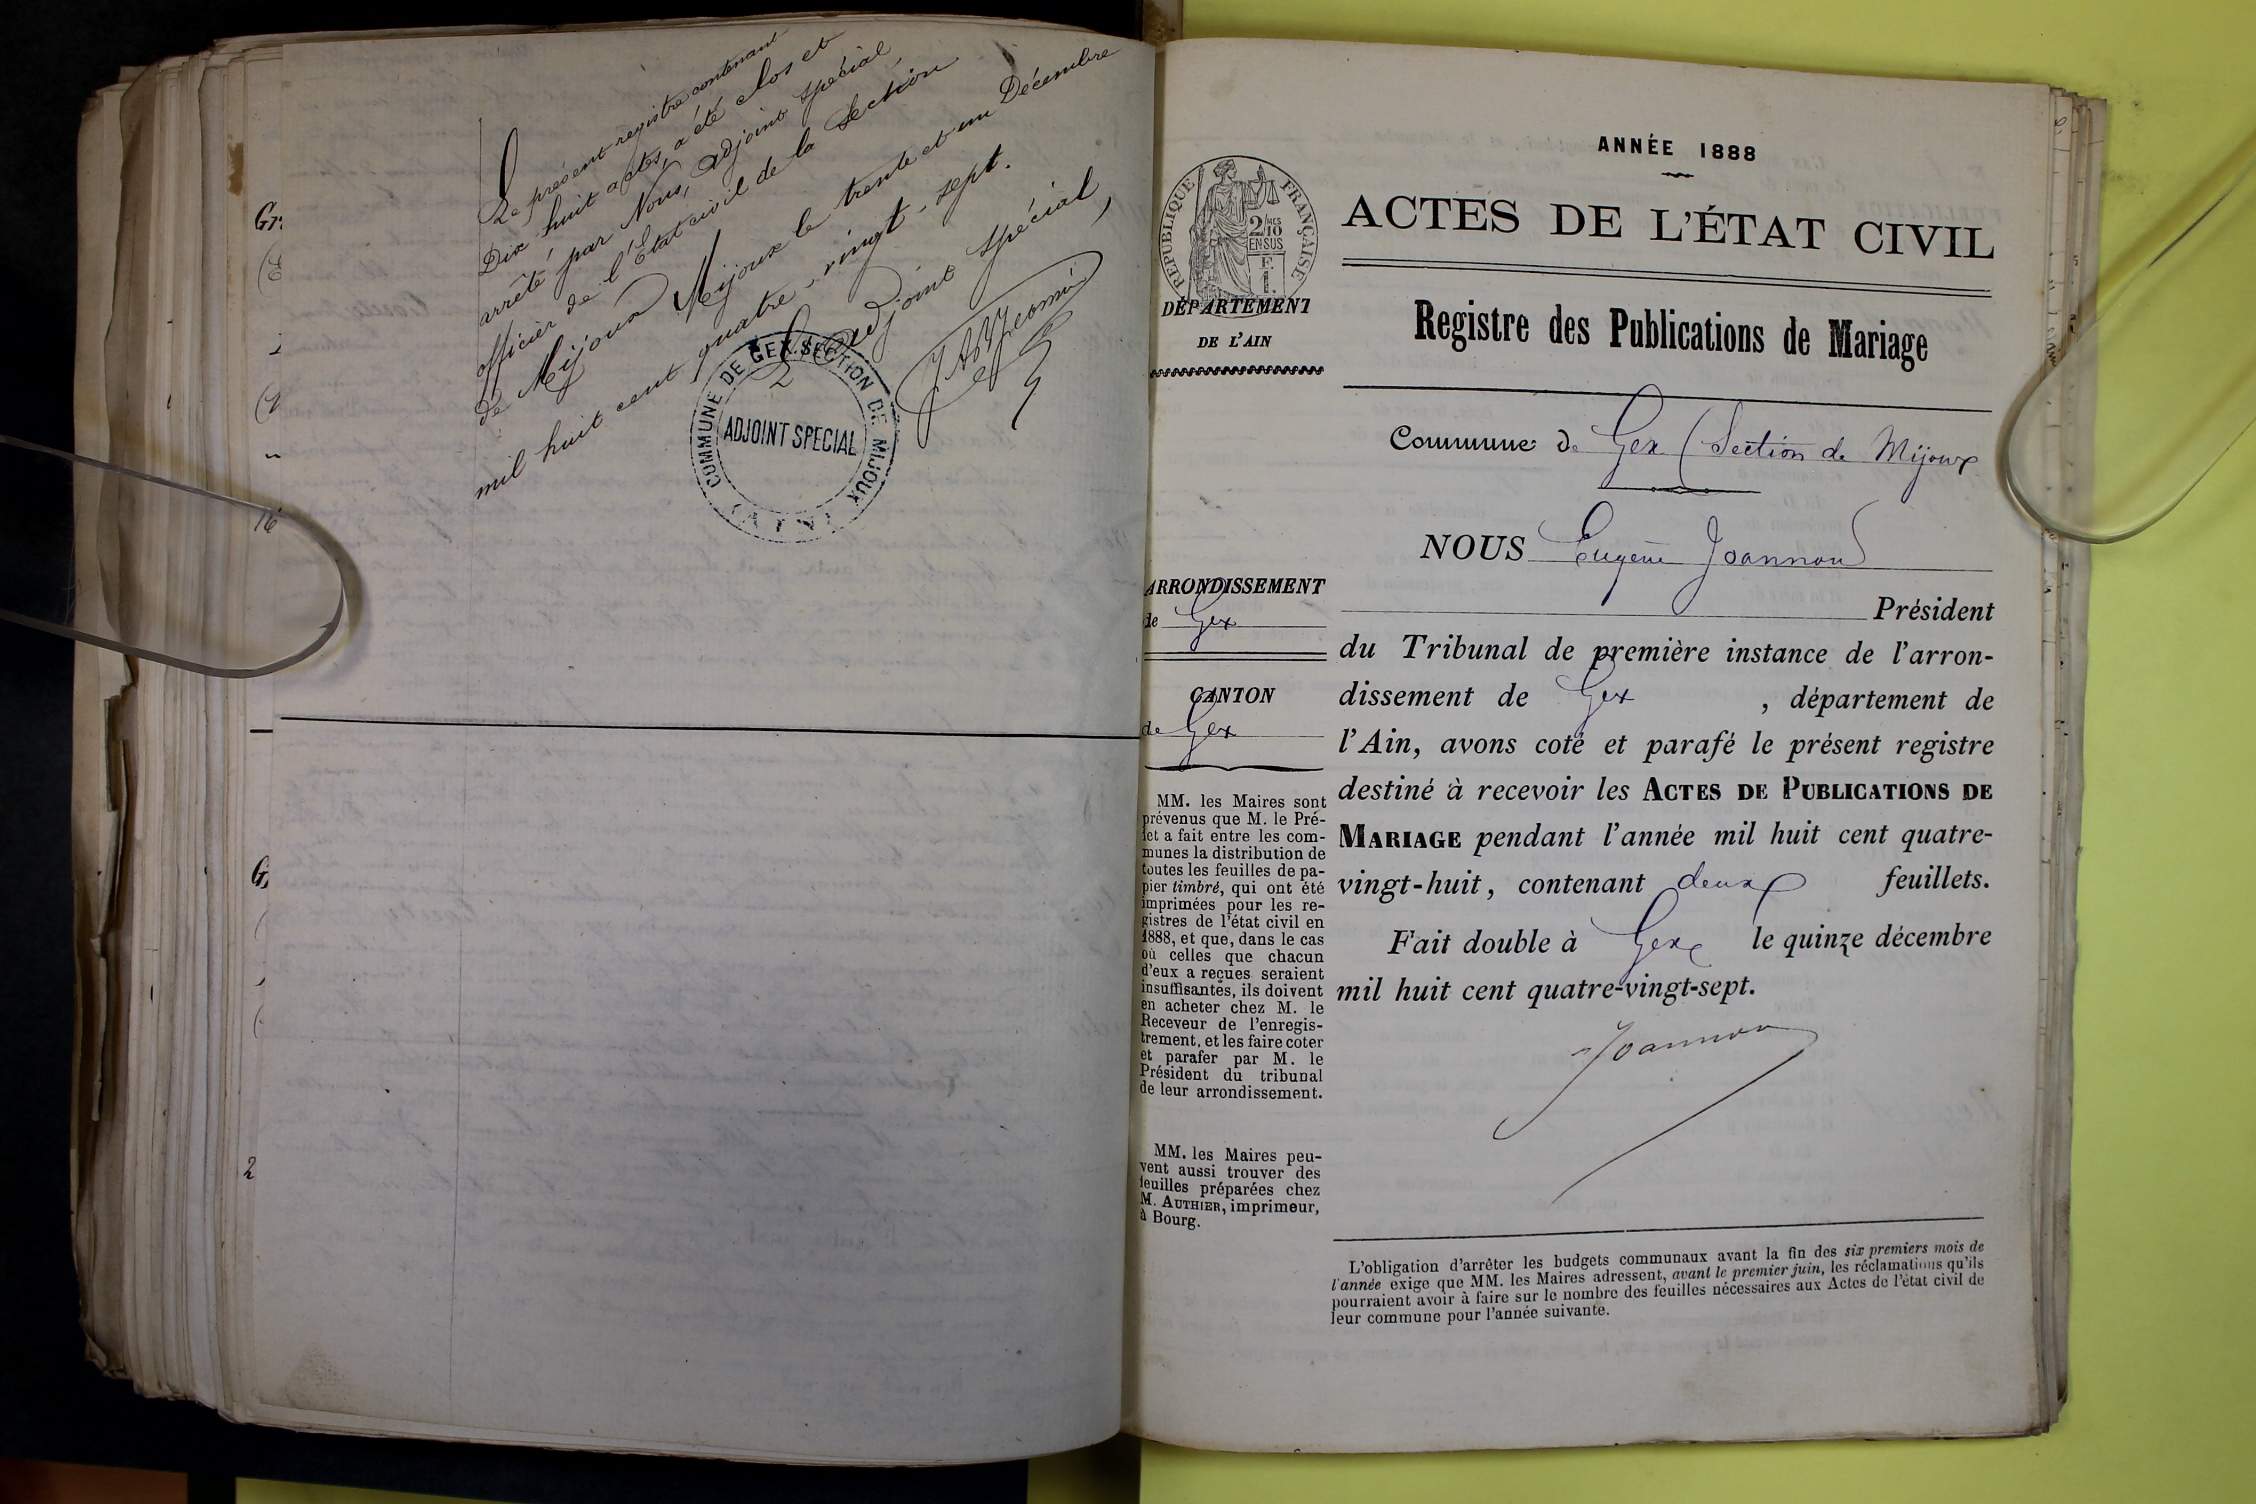 Le présent registre contenant
Dix huit actes, a été clos et
arrêté par Nous, adjoint spécial,
officier de l'Etat civil de la Section
de Mijoux Mijoux le trente et un Décembre
mil huit cent quatre-vingt-sept.
L'adjoint spécial,
COMMUNE DE GEX. SECTION DE MIJOUX
ADJOINT SPECIAL
(AIN)
ANNÉE 1888
ACTES DE L'ÉTAT CIVIL
RÉPUBLIQUE FRANÇAISE
2/10
EN SUS
F.
1.
DÉPARTEMENT
DE L'AIN
Registre des Publications de Mariage
Commune de Gex (Section de Mijoux
NOUS Eugène Joannon
Président
du Tribunal de première instance de l'arron-
dissement de Gex, département de
l'Ain, avons coté et parafé le présent registre
destiné à recevoir les ACTES DE PUBLICATIONS DE
MARIAGE pendant l'année mil huit cent quatre-
vingt-huit, contenant deux feuillets.
Fait double à Gex le quinze décembre
mil huit cent quatre-vingt-sept.
Joannon
ARRONDISSEMENT
de Gex
CANTON
de Gex
MM. les Maires sont
prévenus que M. le Pré-
fet a fait entre les com-
munes la distribution de
toutes les feuilles de pa-
pier timbré, qui ont été
imprimées pour les re-
gistres de l'état civil en
1888, et que, dans le cas
où celles que chacun
d'eux a reçues seraient
insuffisantes, ils doivent
en acheter chez M. le
Receveur de l'enregis-
trement, et les faire coter
et parafer par M. le
Président du tribunal
de leur arrondissement.
MM. les Maires peu-
vent aussi trouver des
feuilles préparées chez
M. AUTHIER, imprimeur,
à Bourg.
L'obligation d'arrêter les budgets communaux avant la fin des six premiers mois de
l'année exige que MM. les Maires adressent, avant le premier juin, les réclamations qu'ils
pourraient avoir à faire sur le nombre des feuilles nécessaires aux Actes de l'état civil de
leur commune pour l'année suivante.